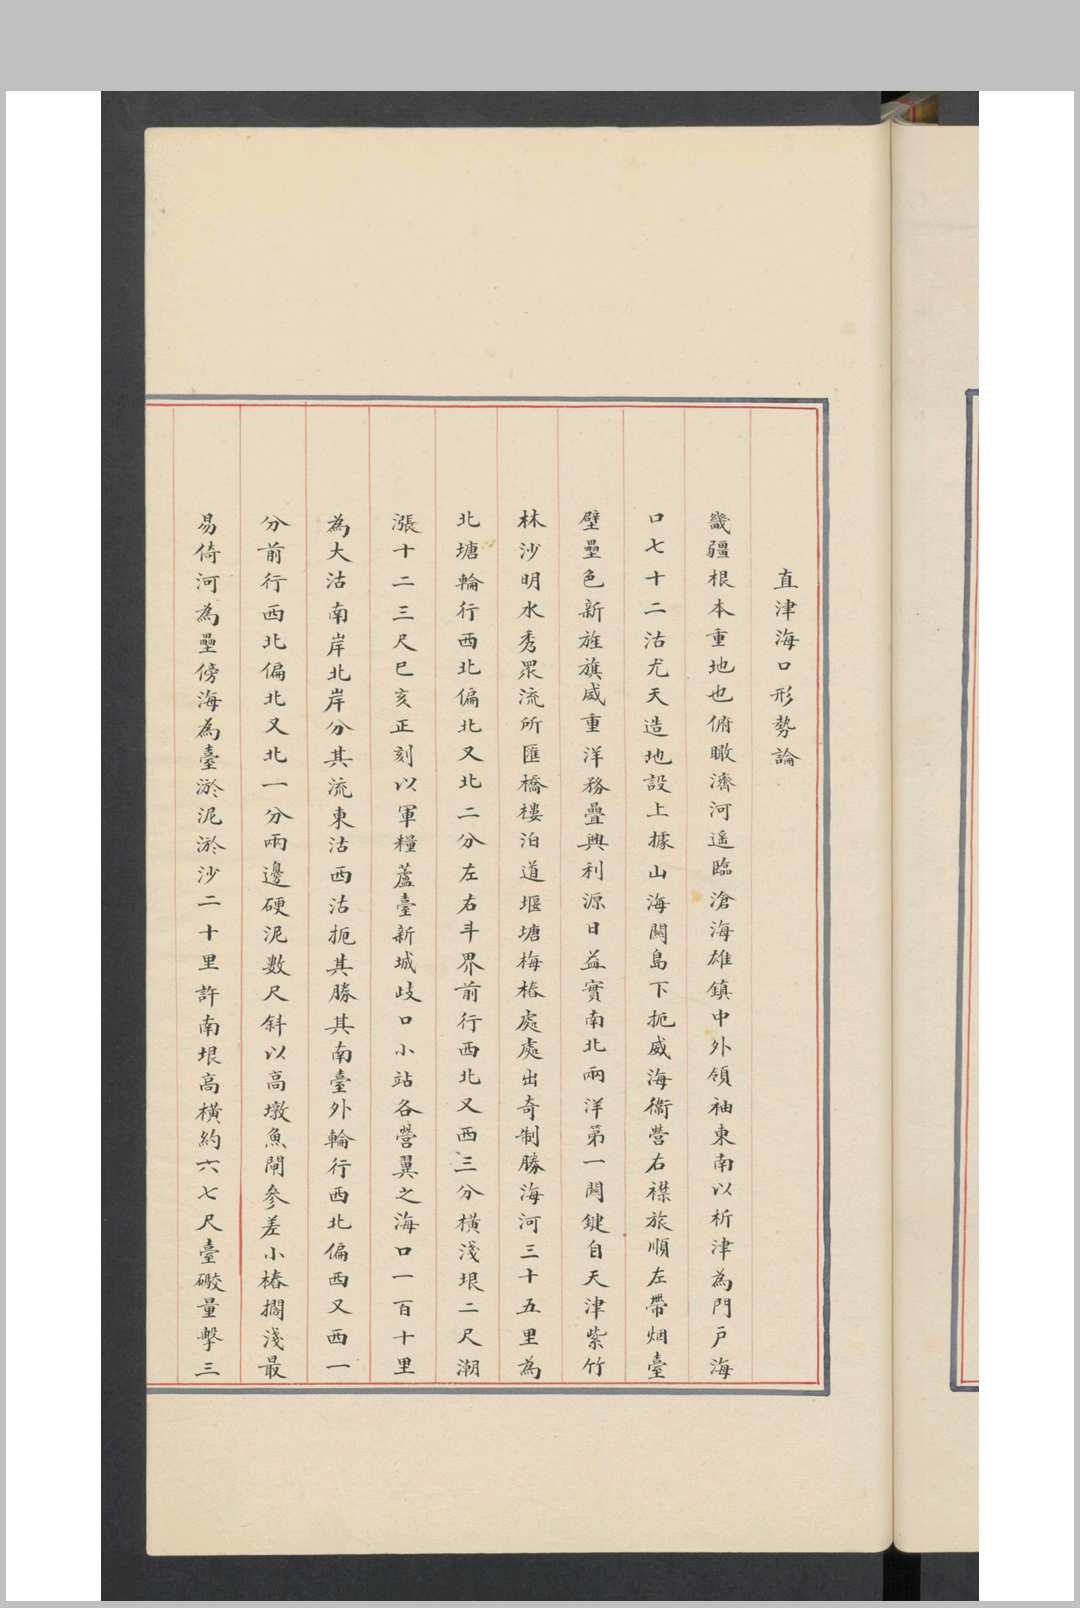 直津海口形勢論
畿疆根本重地也俯瞰濟河遥臨滄海雄鎮中外領袖東南以析津為門戶海
口七十二沽尤天造地設上據山海關島下扼威海衞營右襟旅順左帶烟臺
壁壘色新旌旗威重洋務疊興利源日益實南北兩洋第一關鍵自天津紫竹
林沙明水秀眾流所匯橋樓泊道堰塘梅樁處處出奇制勝海河三十五里為
北塘輪行西北偏北又北二分左右斗界前行西北又西三分橫淺垠二尺潮
漲十二三尺巳亥正刻以軍糧蘆臺新城歧口小站各營翼之海口一百十里
為大沽南岸北岸分其流東沽西沽扼其勝其南臺外輪行西北偏西又西一
分前行西北偏北又北一分兩邊硬泥數尺斜以高墩魚閘參差小樁擱淺最
易倚河為壘傍海為臺淤泥淤沙二十里許南垠高橫約六七尺臺礮量擊三